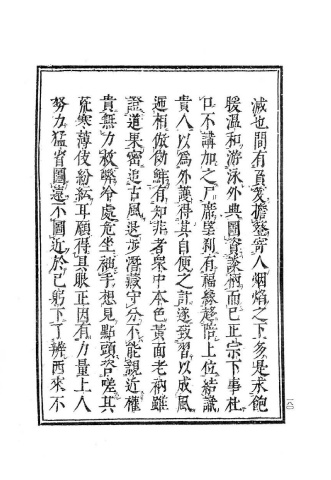 減也間有負夋擔簦寄人烟焰之下亥是求飽
暖溫和游泳外典圖資談柄而已正宗下事杜
口不講加之尸龐望刹有福緣趍階上位結識
貴人以為外護得其自便之計遂致習以成風
遞相倣傚鮮有知非者衆中本色黃面老衲雖
證道果密追古風退步潛藏守分不能親近權
貴無力救弊給處危坐袖手想見點頭咨嗟其
充寒薄伎紛紜耳願得其股正因有力量上人
努力猛省圖遠不圖近於己躬下了辨西來不